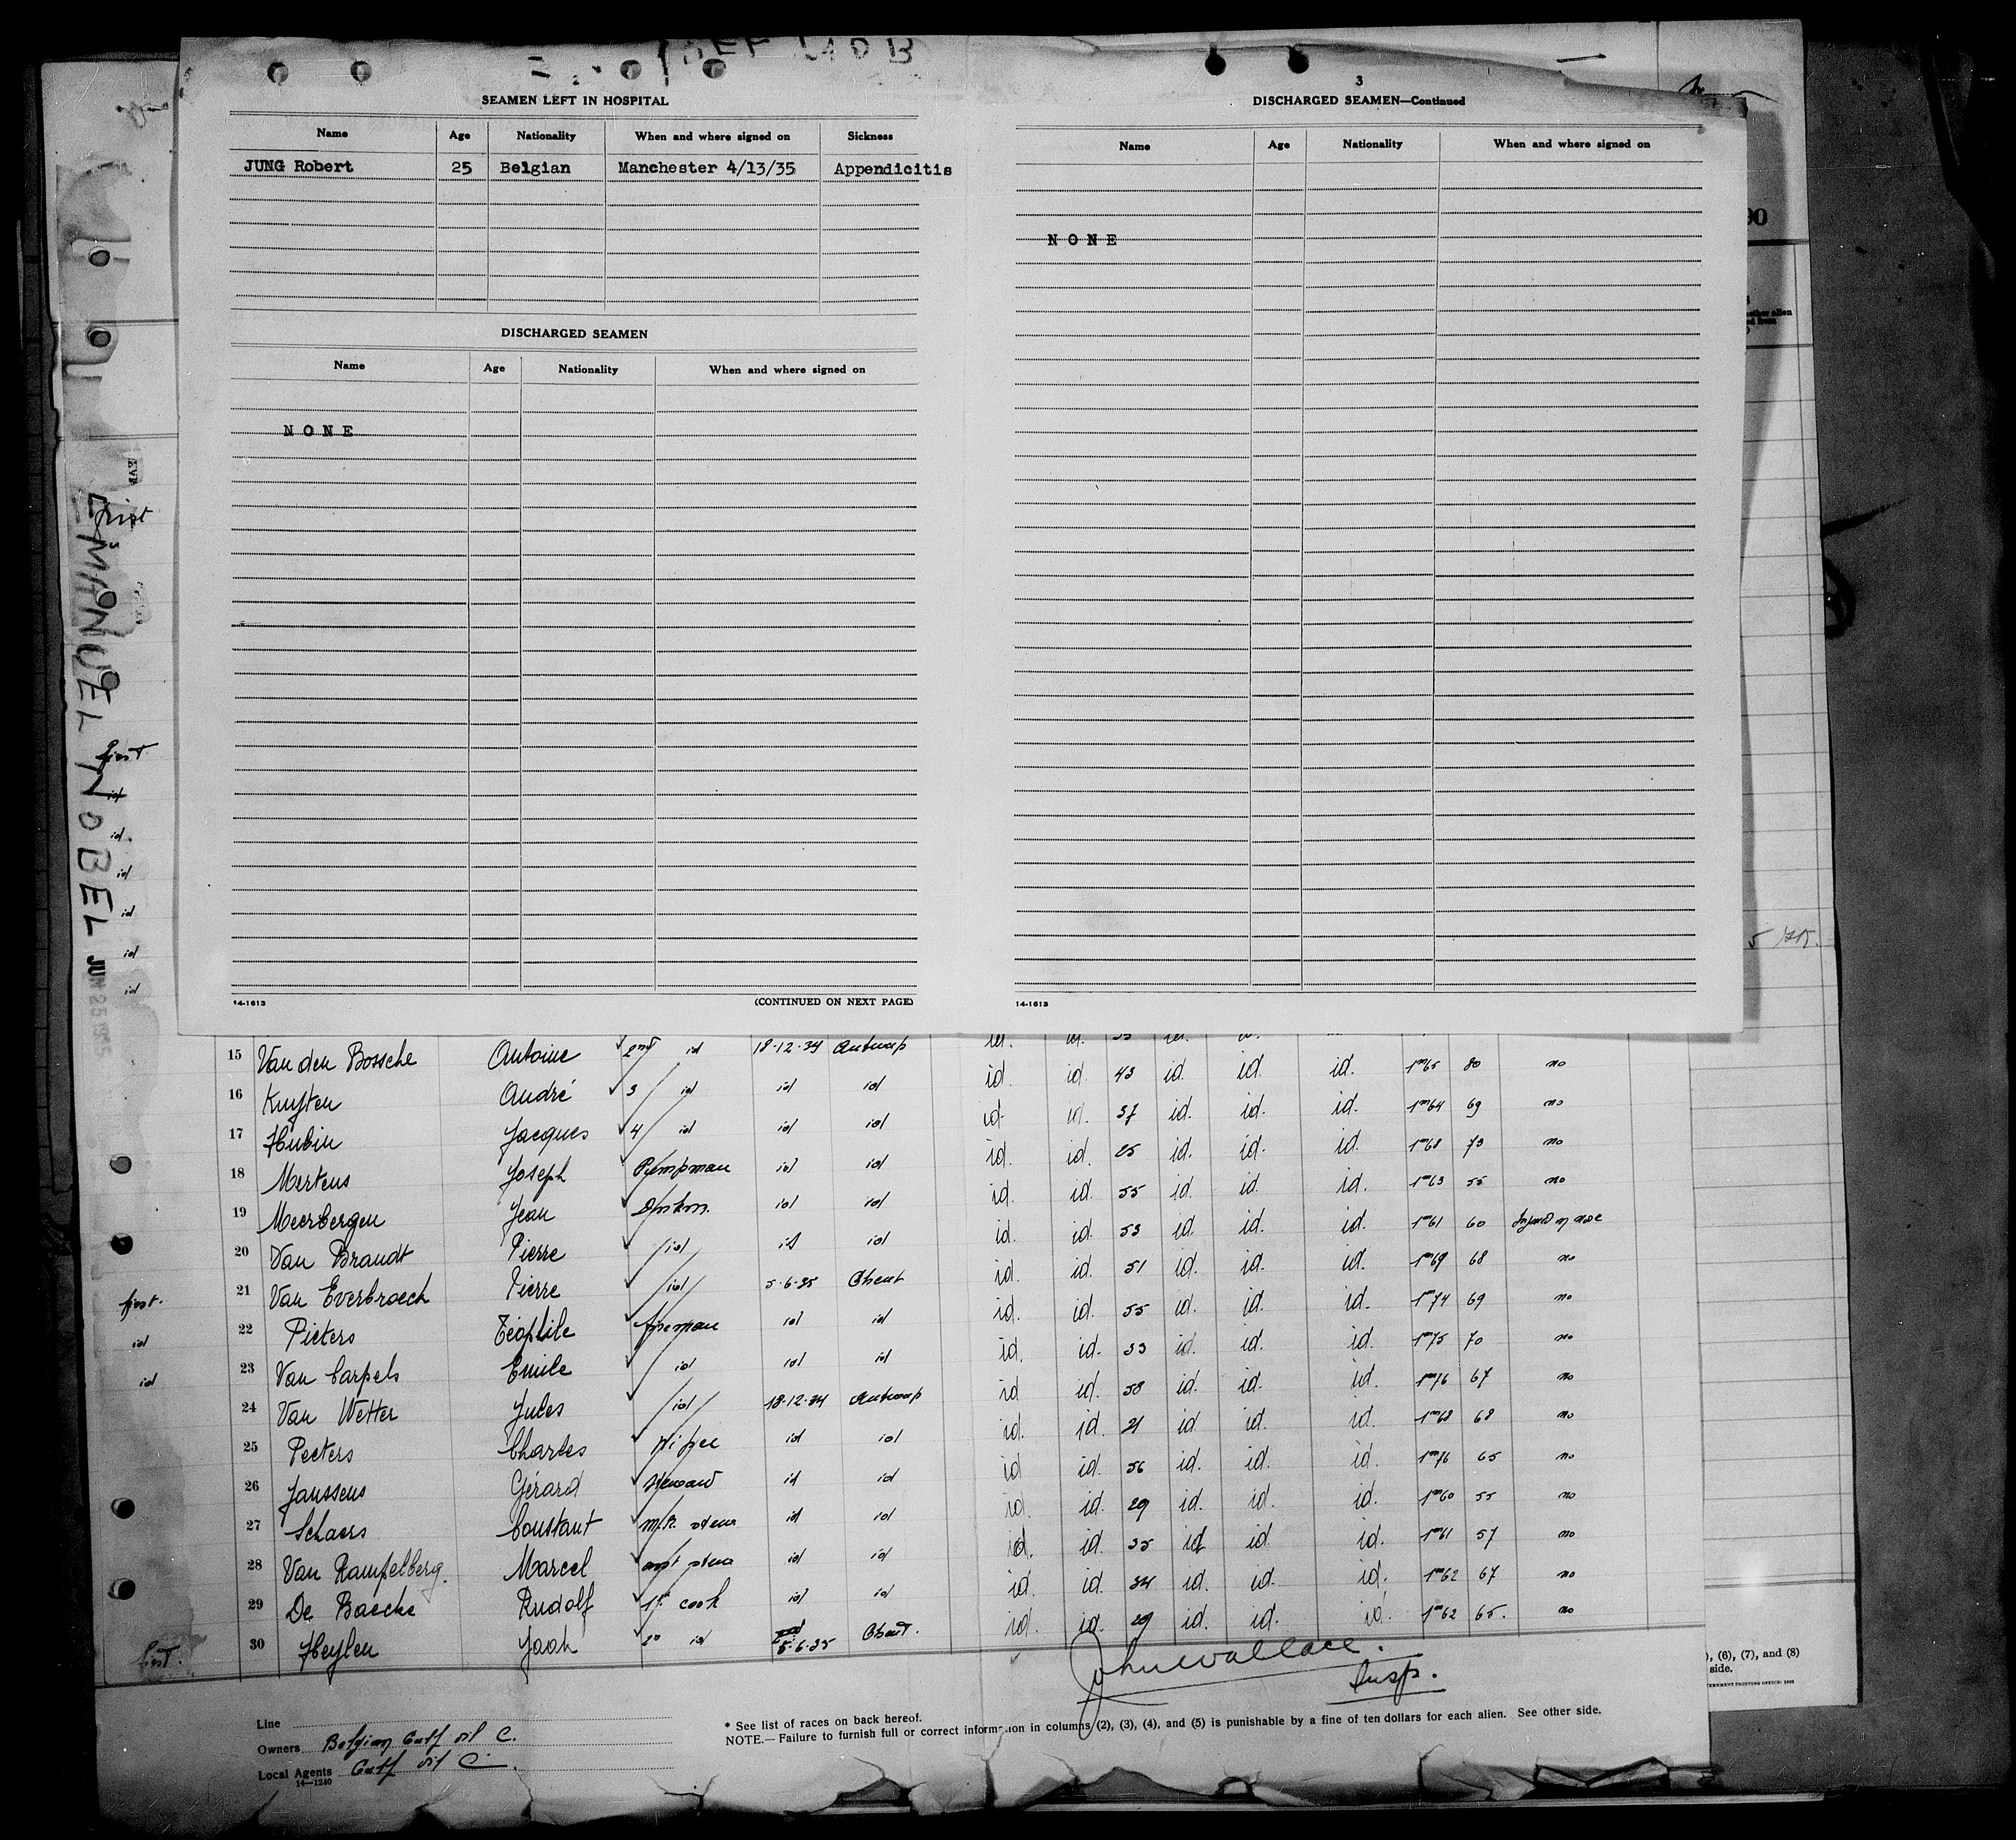 SEAMEN LEFT IN HOSPITAL
Name Age Nationality When and where signed on Sickness
JUNG Robert 25 Belgian Manchester 4/13/35 Appendicitis
DISCHARGED SEAMEN
Name Age Nationality When and where signed on
NONE
14-1613 (CONTINUED ON NEXT PAGE)
3
DISCHARGED SEAMEN—Continued
Name Age Nationality When and where signed on
NONE
14-1613
EMANUEL NOBEL JUN 25
first
first
id
id.
id
id
id
id
15 Van den Bossche Antoine 2nd id 18-12-34 Antwerp
16 Kuyten André 3 id id id id. id. 43 id. id. id. 1m65 80 no
17 Hubin Jacques 4 id id id id. id. 37 id. id. id. 1m64 69 no
18 Mertens Joseph Pumpman id id id. id. 25 id. id. id 1m68 73 no
19 Meerbergen Jean id id id. id. 55 id. id. id. 1m63 55 no
20 Van Brandt Pierre id id id id. id. 53 id. id. id. 1m61 60
first. 21 Van Everbroeck Pierre id 5-6-35 Ghent id. id. 51 id. id. id. 1m69 68 no
id 22 Pieters Téophile fireman id id id. id. 55 id. id. id. 1m74 69 no
id 23 Van Carpels Emile id id id id. id. 33 id. id. id. 1m75 70 no
24 Van Wetter Jules id 18-12-34 Antwerp id id. 58 id. id. id. 1m76 67 no
25 Peeters Charles id id id. id. 21 id id. id. 1m68 68 no
26 Janssens Gérard Steward id id id id. 56 id. id. id. 1m76 65 no
27 Schaers Constant id id id id. 29 id. id. id. 1m60 55 no
28 Van Rampelberg. Marcel id id id. id. 35 id id. id. 1m61 57 no
29 De Baecke Rudolf 1st cook id id id. id. 34 id. id. id. 1m62 67 no
first. 30 Heylen Jack 2d id 5-6-35 Ghent. id. id. 29 id. id. id. 1m62 65. no
John Wallace.
Insp.
Line
Owners Belgian Gulf oil C.
Local Agents Gulf oil C.
14—1240
* See list of races on back hereof.
NOTE.—Failure to furnish full or correct information in columns (2), (3), (4), and (5) is punishable by a fine of ten dollars for each alien. See other side.
, (6), (7), and (8)
side.